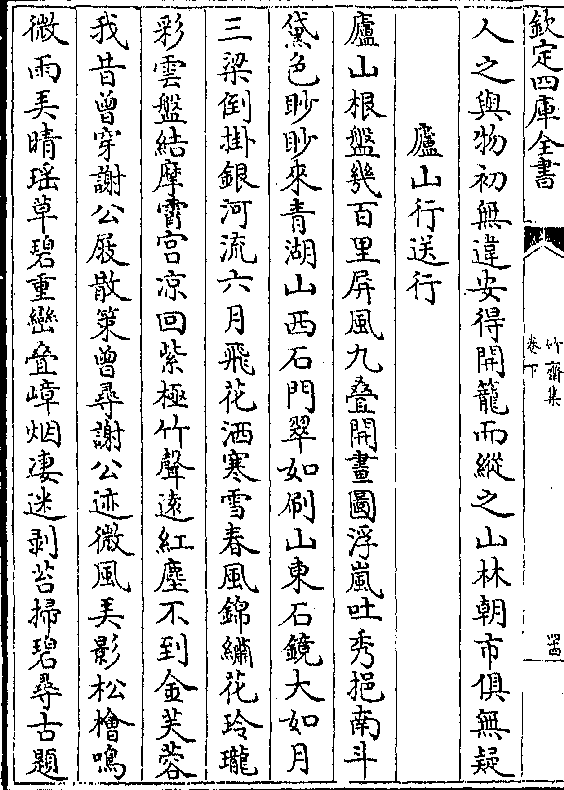 欽定四庫全書
竹齋集
卷下
人之與物初無違安得開籠而縱之山林朝市俱無疑
廬山行送行
廬山根盤幾百里屏風九叠開畫圖浮嵐吐秀挹南斗
黛色眇眇來青湖山西石門翠如刷山東石鏡大如月
三梁倒掛銀河流六月飛花洒寒雪春風錦繡花玲瓏
彩雲盤結摩霄宫凉回紫極竹聲逺紅塵不到金芙蓉
我昔曾穿謝公屐散策曽尋謝公迹微風美影松檜鳴
微雨美晴瑶草碧重巒叠嶂烟凄迷剥苔掃碧尋古題